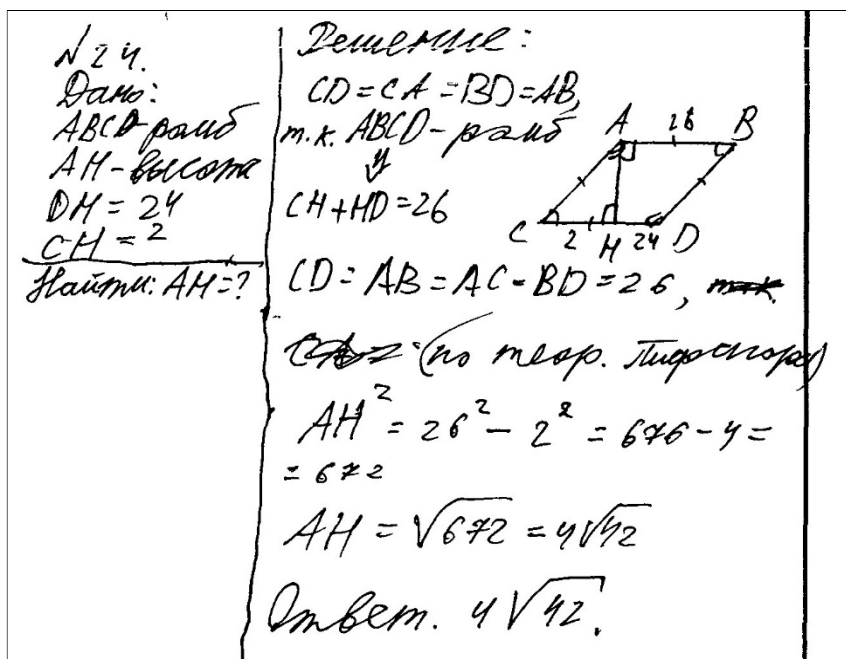 N 24.
Дано:
ABCD-ромб
AH-высота
DH = 24
CH = 2
Найти: AH=?
Решение:
CD = CA = BD = AB,
т.к. ABCD - ромб
⇓
CH + HD = 26
A 26 B
C 2 H 24 D
CD = AB = AC = BD = 26,
(по теор. Пифагора)
AH² = 26² - 2² = 676 - 4 =
= 672
AH = √672 = 4√42
Ответ. 4√42.